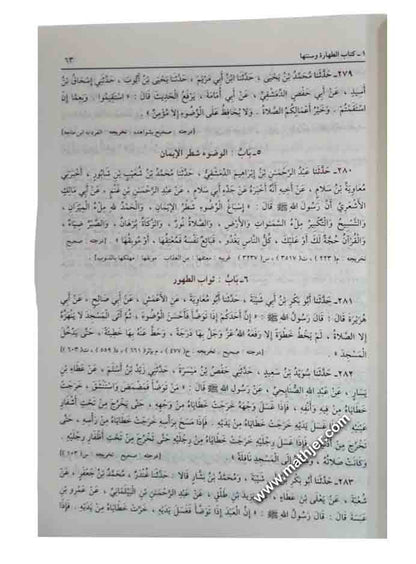 ١- كتاب الطهارة وسننها
٦٣
٢٧٩- حَدَّثَنَا مُحَمَّدُ بْنُ يَحْيَى، حَدَّثَنَا ابْنُ أَبِي مَرْيَمَ، حَدَّثَنَا يَحْيَى بْنُ أَيُّوبَ، حَدَّثَنِي إِسْحَاقُ بْنُ
أَسِيدٍ، عَنْ أَبِي حَفْصٍ الدِّمَشْقِيِّ، عَنْ أَبِي أُمَامَةَ، يَرْفَعُ الْحَدِيثَ قَالَ: «اسْتَقِيمُوا، وَنِعِمَّا إِنِ
اسْتَقَمْتُمْ. وَخَيْرُ أَعْمَالِكُمُ الصَّلَاةُ. وَلَا يُحَافِظُ عَلَى الْوُضُوءِ إِلَّا مُؤْمِنٌ».
٥- بَابُ: الوضوء شطر الإيمان
٢٨٠- حَدَّثَنَا عَبْدُ الرَّحْمَنِ بْنُ إِبْرَاهِيمَ الدِّمَشْقِيُّ، حَدَّثَنَا مُحَمَّدُ بْنُ شُعَيْبِ بْنِ شَابُورَ، أَخْبَرَنِي
مُعَاوِيَةُ بْنُ سَلَّامٍ، عَنْ أَخِيهِ أَنَّهُ أَخْبَرَهُ عَنْ جَدِّهِ أَبِي سَلَّامٍ، عَنْ عَبْدِ الرَّحْمَنِ بْنِ غَنْمٍ، عَنْ أَبِي مَالِكٍ
الْأَشْعَرِيِّ أَنَّ رَسُولَ اللهِ ﷺ قَالَ: «إِسْبَاغُ الْوُضُوءِ شَطْرُ الْإِيمَانِ، وَالْحَمْدُ لله مِلْءُ الْمِيزَانِ،
وَالتَّسْبِيحُ وَالتَّكْبِيرُ مِلْءُ السَّمَوَاتِ وَالْأَرْضِ، وَالصَّلَاةُ نُورٌ، وَالزَّكَاةُ بُرْهَانٌ، وَالصَّبْرُ ضِيَاءٌ،
وَالْقُرْآنُ حُجَّةٌ لَكَ أَوْ عَلَيْكَ، كُلُّ النَّاسِ يَغْدُو، فَبَائِعٌ نَفْسَهُ فَمُعْتِقُهَا، أَوْ مُوبِقُهَا».
٦- بَابُ: ثواب الطهور
٢٨١- حَدَّثَنَا أَبُو بَكْرِ بْنُ أَبِي شَيْبَةَ، حَدَّثَنَا أَبُو مُعَاوِيَةَ، عَنِ الْأَعْمَشِ، عَنْ أَبِي صَالِحٍ، عَنْ أَبِي
هُرَيْرَةَ قَالَ: قَالَ رَسُولُ اللهِ ﷺ: «إِنَّ أَحَدَكُمْ إِذَا تَوَضَّأَ فَأَحْسَنَ الْوُضُوءَ، ثُمَّ أَتَى الْمَسْجِدَ لَا يَنْهَزُهُ
إِلَّا الصَّلَاةُ، لَمْ يَخْطُ خَطْوَةً إِلَّا رَفَعَهُ اللهُ عَزَّ وَجَلَّ بِهَا دَرَجَةً، وَحَطَّ عَنْهُ بِهَا خَطِيئَةً، حَتَّى يَدْخُلَ
الْمَسْجِدَ».
٢٨٢- حَدَّثَنَا سُوَيْدُ بْنُ سَعِيدٍ، حَدَّثَنِي حَفْصُ بْنُ مَيْسَرَةَ، حَدَّثَنِي زَيْدُ بْنُ أَسْلَمَ، عَنْ عَطَاءِ بْنِ
يَسَارٍ، عَنْ عَبْدِ اللهِ الصُّنَابِحِيِّ، عَنْ رَسُولِ اللهِ ﷺ قَالَ: «مَنْ تَوَضَّأَ فَمَضْمَضَ وَاسْتَنْشَقَ، خَرَجَتْ
خَطَايَاهُ مِنْ فِيهِ وَأَنْفِهِ، فَإِذَا غَسَلَ وَجْهَهُ خَرَجَتْ خَطَايَاهُ مِنْ وَجْهِهِ، حَتَّى يَخْرُجَ مِنْ تَحْتِ أَشْفَارِ
عَيْنَيْهِ، فَإِذَا غَسَلَ يَدَيْهِ خَرَجَتْ خَطَايَاهُ مِنْ يَدَيْهِ، فَإِذَا مَسَحَ بِرَأْسِهِ خَرَجَتْ خَطَايَاهُ مِنْ رَأْسِهِ، حَتَّى
تَخْرُجَ مِنْ أُذُنَيْهِ، فَإِذَا غَسَلَ رِجْلَيْهِ خَرَجَتْ خَطَايَاهُ مِنْ رِجْلَيْهِ حَتَّى تَخْرُجَ مِنْ تَحْتِ أَظْفَارِ رِجْلَيْهِ،
وَكَانَتْ صَلَاتُهُ، إِلَى الْمَسْجِدِ نَافِلَةً».
٢٨٣- حَدَّثَنَا أَبُو بَكْرِ بْنُ أَبِي شَيْبَةَ، وَمُحَمَّدُ بْنُ بَشَّارٍ قَالَا: حَدَّثَنَا غُنْدَرٌ، مُحَمَّدُ بْنُ جَعْفَرٍ، عَنْ
شُعْبَةَ، عَنْ يَعْلَى بْنِ عَطَاءٍ، عَنْ يَزِيدَ بْنِ طَلْقٍ، عَنْ عَبْدِ الرَّحْمَنِ بْنِ الْبَيْلَمَانِيِّ، عَنْ عَمْرِو بْنِ
عَبَسَةَ قَالَ: قَالَ رَسُولُ اللهِ ﷺ: «إِنَّ الْعَبْدَ إِذَا تَوَضَّأَ فَغَسَلَ يَدَيْهِ، خَرَّتْ خَطَايَاهُ مِنْ يَدَيْهِ،
www.mathjer.com